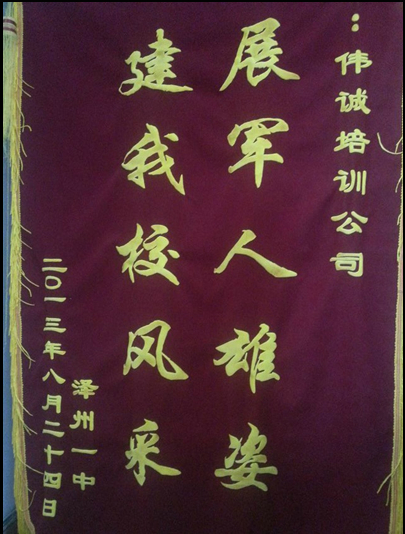 ：伟诚培训公司
展军人雄姿
建我校风采
泽州一中
二〇一三年八月二十四日